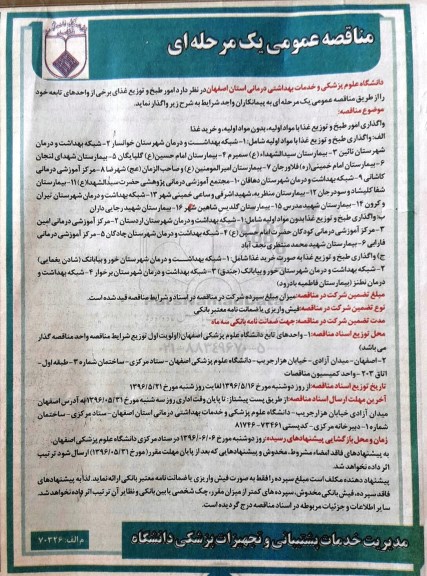 مناقصه عمومی یک مرحله ای
دانشگاه علوم پزشکی و خدمات بهداشتی درمانی استان اصفهان در نظر دارد امور طبخ و توزیع غذای برخی از واحدهای تابعه خود
را از طریق مناقصه عمومی یک مرحله ای به پیمانکاران واجد شرایط به شرح زیر واگذار نماید.
موضوع مناقصه:
واگذاری امور طبخ و توزیع غذا با مواد اولیه، بدون مواد اولیه، و خرید غذا
الف: واگذاری طبخ و توزیع غذا با مواد اولیه شامل: ۱- شبکه بهداشت و درمان شهرستان خوانسار ۲- شبکه بهداشت و درمان
شهرستان نائین ۳- بیمارستان سیدالشهداء (ع) سمیرم ۴- بیمارستان امام حسین (ع) گلپایگان ۵- بیمارستان شهدای لنجان
۶- بیمارستان امام خمینی (ره) فلاورجان ۷- بیمارستان امیرالمومنین (ع) و صاحب الزمان (عج) شهرضا ۸- مرکز آموزشی درمانی
کاشانی ۹- شبکه بهداشت و درمان شهرستان دهاقان ۱۰- مجتمع آموزشی درمانی پژوهشی حضرت سیدالشهداء (ع) ۱۱- بیمارستان
شفا کلیشاد و سودرجان ۱۲- بیمارستان منتظریه، شهید اشرفی و سامی خمینی شهر ۱۳- شبکه بهداشت و درمان شهرستان تیران
و کرون ۱۴- بیمارستان شهید مدرس ۱۵- بیمارستان گلدیس شاهین شهر ۱۶- بیمارستان شهید رجایی داران
ب: واگذاری طبخ و توزیع غذا بدون مواد اولیه شامل: ۱- شبکه بهداشت و درمان شهرستان اردستان ۲- مرکز آموزشی درمانی امین
۳- مرکز آموزشی درمانی کودکان حضرت امام حسین (ع) ۴- شبکه بهداشت و درمان شهرستان چادگان ۵- مرکز آموزشی درمانی
فارابی ۶- بیمارستان شهید محمد منتظری نجف آباد
ج) واگذاری طبخ و توزیع غذا به صورت خرید غذا شامل: ۱- شبکه بهداشت و درمان شهرستان خور و بیابانک (شادن یغمایی)
۲- شبکه بهداشت و درمان شهرستان خور و بیابانک (جندق) ۳- شبکه بهداشت و درمان شهرستان برخوار ۴- شبکه بهداشت و
درمان نطنز (بیمارستان فاطمیه بادرود)
مبلغ تضمین شرکت در مناقصه: میزان مبلغ سپرده شرکت در مناقصه در اسناد و شرایط مناقصه قید شده است.
نوع تضمین شرکت در مناقصه: فیش واریزی یا ضمانت نامه معتبر بانکی
مدت تضمین شرکت در مناقصه: جهت ضمانت نامه بانکی سه ماه
محل توزیع اسناد مناقصه: ۱- واحدهای تابع دانشگاه علوم پزشکی اصفهان (اولویت اول توزیع شرایط مناقصه واحد مناقصه گذار
می باشد)
۲- اصفهان- میدان آزادی- خیابان هزار جریب- دانشگاه علوم پزشکی اصفهان- ستاد مرکزی- ساختمان شماره ۳- طبقه اول-
اتاق ۲۰۳- واحد کمیسیون مناقصات
تاریخ توزیع اسناد مناقصه: از روز دوشنبه مورخ ۱۳۹۶/۵/۱۶ لغایت روز شنبه مورخ ۱۳۹۶/۵/۲۱
آخرین مهلت ارسال اسناد مناقصه: از طریق پست پیشتاز: تا پایان وقت اداری روز سه شنبه مورخ ۱۳۹۶/۰۵/۳۱ به آدرس اصفهان
میدان آزادی خیابان هزار جریب- دانشگاه علوم پزشکی و خدمات بهداشتی درمانی استان اصفهان- ستاد مرکزی- ساختمان
شماره ۱- دبیرخانه مرکزی- کدپستی ۷۳۴۶۱-۸۱۷۴۶
زمان و محل بازگشایی پیشنهادهای رسیده: روز دوشنبه مورخ ۱۳۹۶/۰۶/۰۶ در ستاد مرکزی دانشگاه علوم پزشکی اصفهان.
به پیشنهادهای فاقد امضاء، مشروط، مخدوش و پیشنهادهایی که بعد از پایان مهلت مقرر (مورخ ۱۳۹۶/۰۵/۳۱) ارسال شود ترتیب
اثر داده نخواهد شد.
پیشنهاد دهنده مکلف است مبلغ سپرده را فقط به صورت فیش واریزی یا ضمانت نامه معتبر بانکی ارائه نماید. لذا به پیشنهادهای
فاقد سپرده، فیش بانکی مخدوش، سپرده های کمتر از میزان مقرر، چک شخصی یا بین بانکی و نظایر آن ترتیب اثر داده نخواهد شد.
سایر اطلاعات و جزئیات مربوطه در اسناد مناقصه درج گردیده است.
مدیریت خدمات پشتیبانی و تجهیزات پزشکی دانشگاه
م الف: ۷۰۳۲۶